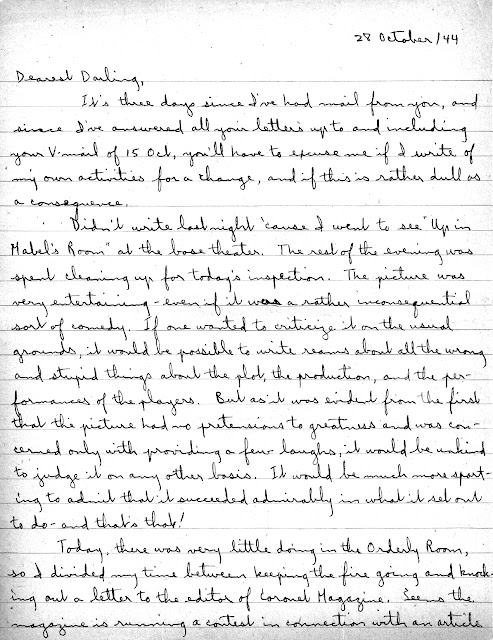 28 October/44
Dearest Darling,
It's three days since I've had mail from you, and
since I've answered all your letters up to and including
your V-mail of 15 Oct, you'll have to excuse me if I write of
my own activities for a change, and if this is rather dull as
a consequence.
Didn't write last night 'cause I went to see "Up in
Mabel's Room" at the base theater. The rest of the evening was
spent cleaning up for today's inspection. The picture was
very entertaining - even if it was a rather inconsequential
sort of comedy. If one wanted to criticize it on the usual
grounds, it would be possible to write reams about all the wrong
and stupid things about the plot, the production, and the per-
formances of the players. But as it was evident from the first
that the picture had no pretensions to greatness and was con-
cerned only with providing a few laughs, it would be unkind
to judge it on any other basis. It would be much more sport-
ing to admit that it succeeded admirably in what it set out
to do - and that's that!
Today, there was very little doing in the Orderly Room,
so I divided my time between keeping the fire going and knock-
ing out a letter to the editor of Coronet Magazine. Seems the
magazine is running a contest in connection with an article